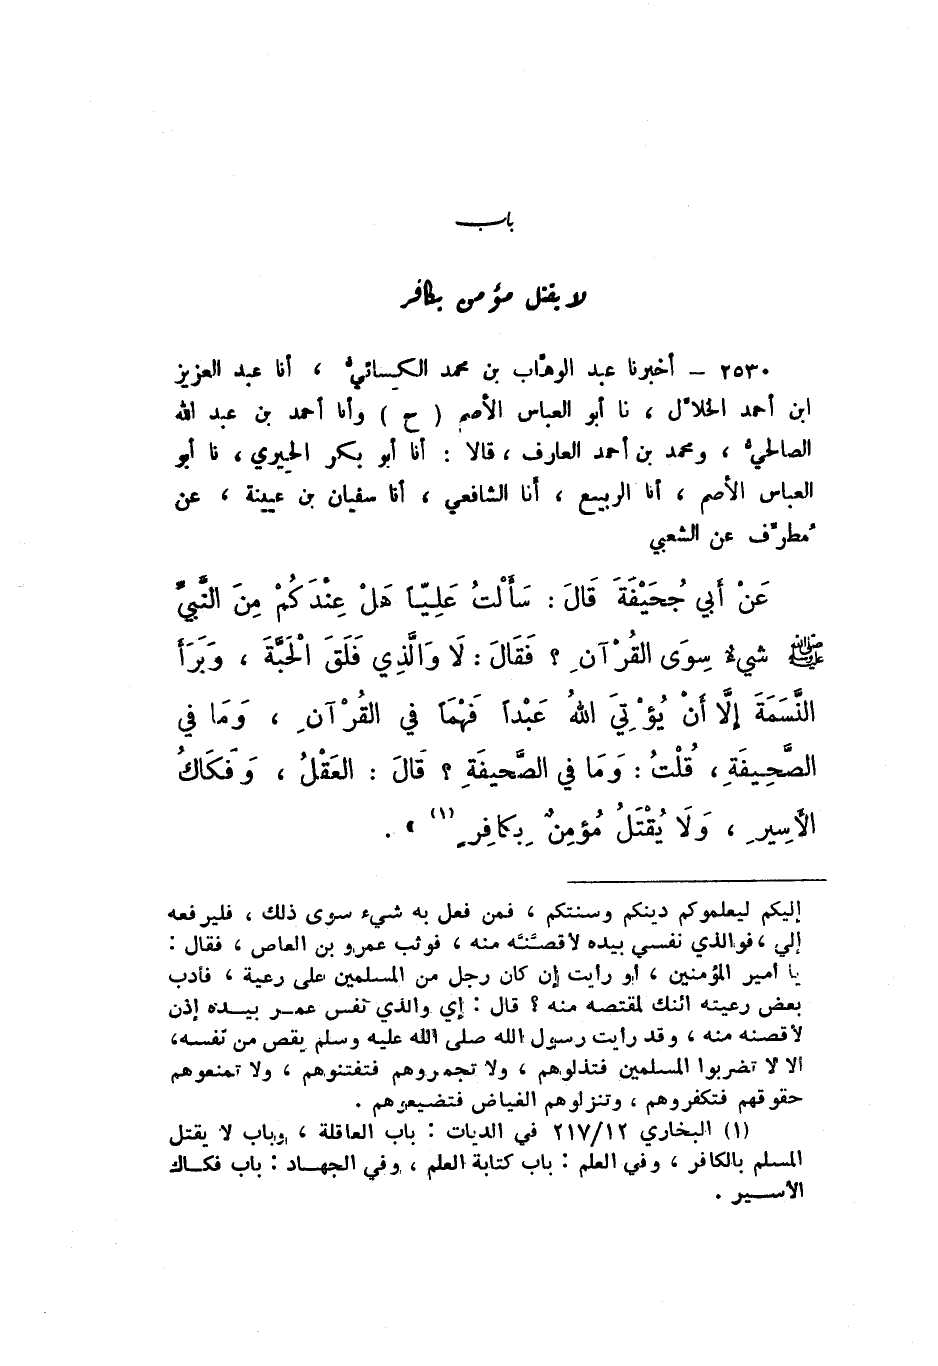 باب
لا يقتل مؤمن بكافر
٢٥٣٠ – أخبرنا عبد الوهّاب بن محمد الكسائيُّ ، أنا عبد العزيز
ابن أحمد الخلاّل ، نا أبو العباس الأصم ( ح ) وأنا أحمد بن عبد الله
الصالحيُّ ، ومحمد بن أحمد العارف ، قالا : أنا أبو بكر الحيري ، نا أبو
العباس الأصم ، أنا الربيع ، أنا الشافعي ، أنا سفيان بن عيينة ، عن
مُطرِّف عن الشعبي
عَنْ أَبي جُحَيْفَةَ قَالَ : سَأَلْتُ عَلِيّاً هَلْ عِنْدَكُمْ مِنَ النَّبيِّ
ﷺ شيءٌ سِوَى القُرْآنِ ؟ فَقَالَ : لَا وَالَّذِي فَلَقَ الْحَبَّةَ ، وَبَرَأَ
النَّسَمَةَ إِلَّا أَنْ يُؤْتِيَ اللهُ عَبْداً فَهْمَاً في القُرْآنِ ، وَمَا في
الصَّحِيفَةِ ، قُلْتُ : وَمَا في الصَّحيفَةِ ؟ قَالَ : العَقْلُ ، وَفَكَاكُ
الأَسِيرِ ، وَلَا يُقْتَلُ مُؤمِنٌ بِكافِرٍ (١) » .
إليكم ليعلموكم دينكم وسنتكم ، فمن فعل به شيء سوى ذلك ، فليرفعه
إلي ، فوالذي نفسي بيده لاقصَّنَّه منه ، فوثب عمرو بن العاص ، فقال :
يا أمير المؤمنين ، أو رأيت إن كان رجل من المسلمين على رعية ، فأدب
بعض رعيته ائنك لمقتصه منه ؟ قال : إي والذي نفس عمـر بيـده إذن
لأقصنه منه ، وقد رأيت رسول الله صلى الله عليه وسلم يقص من نفسه،
ألا لا تضربوا المسلمين فتذلوهم ، ولا تجمروهم فتفتنوهم ، ولا تمنعوهم
حقوقهم فتكفروهم ، وتنزلوهم الغياض فتضيعوهم .
(١) البخاري ٢١٧/١٢ في الديات : باب العاقلة ، وباب لا يقتل
المسلم بالكافر ، وفي العلم : باب كتابة العلم ، وفي الجهـاد : باب فكـاك
الأسـير .